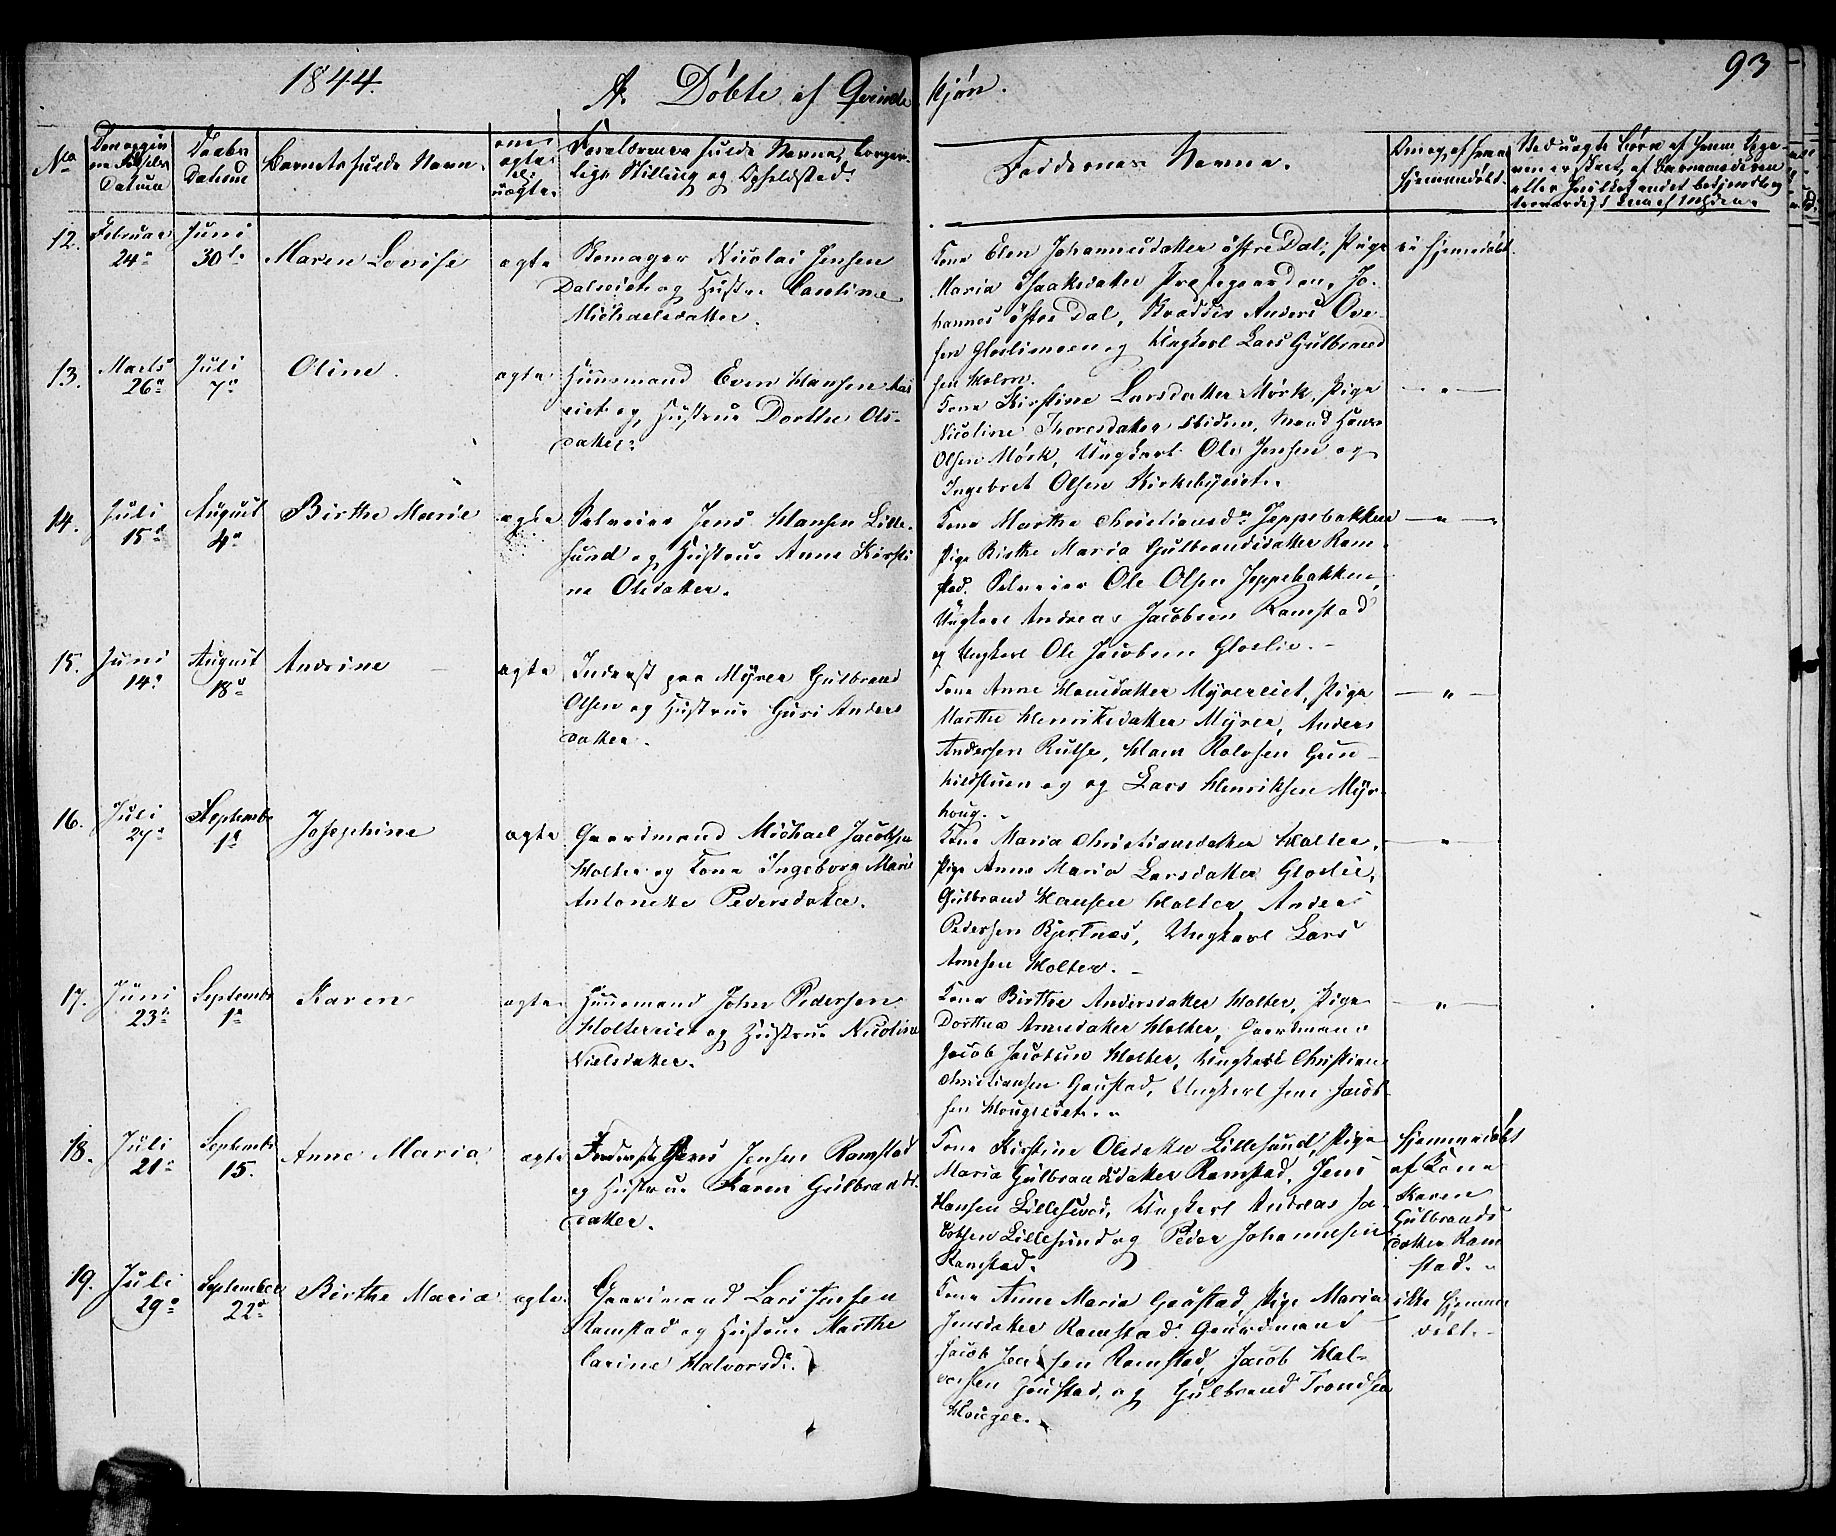 1844.
A. Døbte af Qvinde kjøn.
93
No
Datum
Daabs Datum
Barnets fulde Navn.
om ægte el. uægte.
Forældrenes fulde Navne, borger-
lige Stilling og Opholdssted.
Faddernes Navne.
Om og af hvem hjemmedøbt.
12.
Februar 24de
Juni 30te
Maren Lovise
ægte
Skomager Nicolai Jensen
Daleiet og Hustru Caroline
Michaelsdatter.
Kone Elen Johannesdatter østre Dal, Pige
Maria Isaaksdatter Præstegaarden, Jo-
hannes østre Dal, Skrædder Anders Ove-
sen Gloslimoen og Ungkarl Lars Gulbrand
sen Holm.
ei hjemmedøbt.
13.
Marts 26de
Juli 7de
Oline.
ægte
Huusmand Even Hansen
eiet og Hustrue Dorthe Ols-
datter.
Kone Kirstine Larsdatter Mørk, Pige
Nicoline Thoresdatter ibidem, Mand Hans
Olsen Mørk, Ungkarl Ole Jensen og
Ingebret Olsen Kirkebyeiet.
— " —
14.
Juli 15de
August 4de
Birthe Marie
ægte
Selveier Jens Hansen Lille-
sund og Hustrue Anne Kirsti
ne Olsdatter.
Kone Marthe Christiansdr. Jeppebakken
Pige Birthe Maria Gulbrandsdatter Ram-
stad. Selveier Ole Olsen Jeppebakken,
Ungkarl Andreas Jacobsen Ramstad
og Ungkarl Ole Jacobsen Gloslie.
— " —
15.
Juni 14de
August 18de
Andrine
ægte
Inderst paa Myrer Gulbrand
Olsen og Hustrue Guri Anders
datter.
Kone Anne Hansdatter Myrereiet, Pige
Marthe Henriksdatter Myrer, Anders
Andersen Rulse, Hans Rolvsen Gun-
hildstuen og og Lars Henriksen Myr-
houg.
— " —
16.
Juli 27de
Septembr 1ste
Josephine
ægte
Gaardmand Michael Jacobsen
Holter og Kone Ingeborg Marie
Antonette Pedersdatter.
Kone Maria Christiansdatter Holter,
Pige Anne Maria Larsdatter Gloslie,
Gulbrand Hansen Holter, Anders
Pedersen Bjertnæs, Ungkarl Lars
Arnesen Holter.
— " —
17.
Juni 23de
Septembr 1ste
Karen
ægte
Huusmand John Pedersen
Holtereiet og Hustrue Nicoline
Nielsdatter.
Kone Birthe Andersdatter Holter, Pige
Dorthea Arnesdatter Holter, Gaardmand
Jacob Jacobsen Holter, Ungkarl Christian
Christiansen Gaustad, Ungkarl Jens Jacob-
sen Hougseiet.
— " —
18.
Juli 21de
Septembr 15.
Anne Maria
ægte
Jensen Ramstad
og Hustrue Karen Gulbrands-
datter.
Kone Kirstine Olsdatter Lillesund, Pige
Maria Gulbrandsdatter Ramstad, Jens
Hansen Lillesund, Ungkarl Andreas Ja-
cobsen Lillesund og Peder Johannesen
Ramstad.
hjemmedøbt
af Kone
Karen
Gulbrands
datter Ram
stad.
19.
Juli 29de
September 22de
Birthe Maria
ægte.
Gaardmand Lars Jensen
Ramstad og Hustrue Marthe
Carine Halvorsdr.
Kone Anne Maria Gaustad, Pige Maria
Jensdatter Ramstad. Gaardmand
Jacob Jensen Ramstad, Jacob Hal-
vorsen Gaustad, og Gulbrand Trondsen
Houger.
ikke hjemme
døbt.